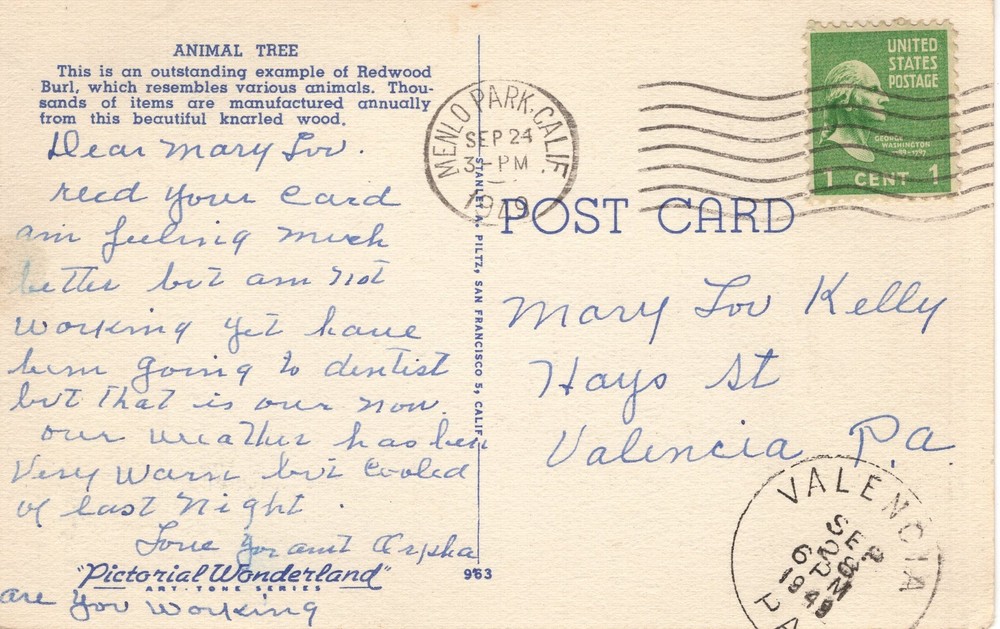 ANIMAL TREE
This is an outstanding example of Redwood
Burl, which resembles various animals. Thou-
sands of items are manufactured annually
from this beautiful knarled wood.
Dear Mary Lou.
recd your card
am feeling much
better but am not
working yet have
been going to dentist
but that is our now.
our weather has been
very warm but cooled
of last night.
Love your aunt Orpha
"Pictorial Wonderland"
ART-TONE SERIES
are you working
963
STANLEY A. PILTZ, SAN FRANCISCO 5, CALIF.
MENLO PARK, CALIF.
SEP 24
3-PM
1949
UNITED
STATES
POSTAGE
GEORGE
WASHINGTON
1789-1797
1 CENT 1
POST CARD
Mary Lou Kelly
Hays St
Valencia Pa.
VALENCIA
SEP
28
6 PM
1949
PA